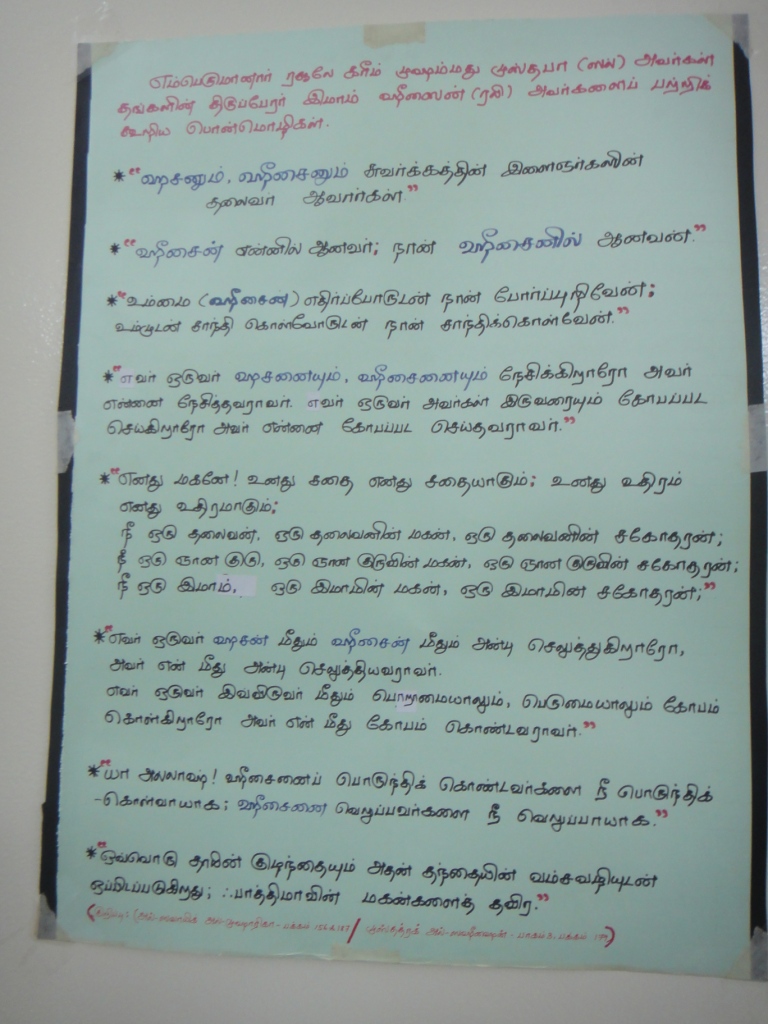 எம்பெருமானார் ரசூலே கரீம் முஹம்மது முஸ்தபா (ஸல்) அவர்கள்
தங்களின் திருப்பேரர் இமாம் ஹுஸைன் (ரலி) அவர்களைப் பற்றிக்
கூறிய பொன்மொழிகள்.
* "ஹசனும், ஹுசைனும் சுவர்க்கத்தின் இளைஞர்களின்
தலைவர் ஆவார்கள்."
* "ஹுசைன் என்னில் ஆனவர்; நான் ஹுசைனில் ஆனவன்."
* "உம்மை (ஹுசைன்) எதிர்ப்போருடன் நான் போர்ப்புரிவேன்;
உம்முடன் சாந்தி கொள்வோருடன் நான் சாந்திக்கொள்வேன்."
* "எவர் ஒருவர் ஹசனையும், ஹுசைனையும் நேசிக்கிறாரோ அவர்
என்னை நேசித்தவராவர். எவர் ஒருவர் அவர்கள் இருவரையும் கோபப்பட
செய்கிறாரோ அவர் என்னை கோபப்பட செய்தவராவர்."
* "எனது மகனே! உனது சதை எனது சதையாகும்; உனது உதிரம்
எனது உதிரமாகும்;
நீ ஒரு தலைவன், ஒரு தலைவனின் மகன், ஒரு தலைவனின் சகோதரன்;
நீ ஒரு ஞான குரு, ஒரு ஞான குருவின் மகன், ஒரு ஞான குருவின் சகோதரன்;
நீ ஒரு இமாம், ஒரு இமாமின் மகன், ஒரு இமாமின் சகோதரன்;"
* "எவர் ஒருவர் ஹசன் மீதும் ஹுசைன் மீதும் அன்பு செலுத்துகிறாரோ,
அவர் என் மீது அன்பு செலுத்தியவராவர்.
எவர் ஒருவர் இவ்விருவர் மீதும் பொறாமையாலும், பெருமையாலும் கோபம்
கொள்கிறாரோ அவர் என் மீது கோபம் கொண்டவராவர்."
* "யா அல்லாஹ்! ஹுசைனைப் பொருந்திக் கொண்டவர்களை நீ பொருந்திக்
-கொள்வாயாக; ஹுசைனை வெறுப்பவர்களை நீ வெறுப்பாயாக."
* "ஒவ்வொரு தாயின் குழந்தையும் அதன் தந்தையின் வம்சவழியுடன்
ஒப்பிடப்படுகிறது; ஃபாத்திமாவின் மகன்களைத் தவிர."